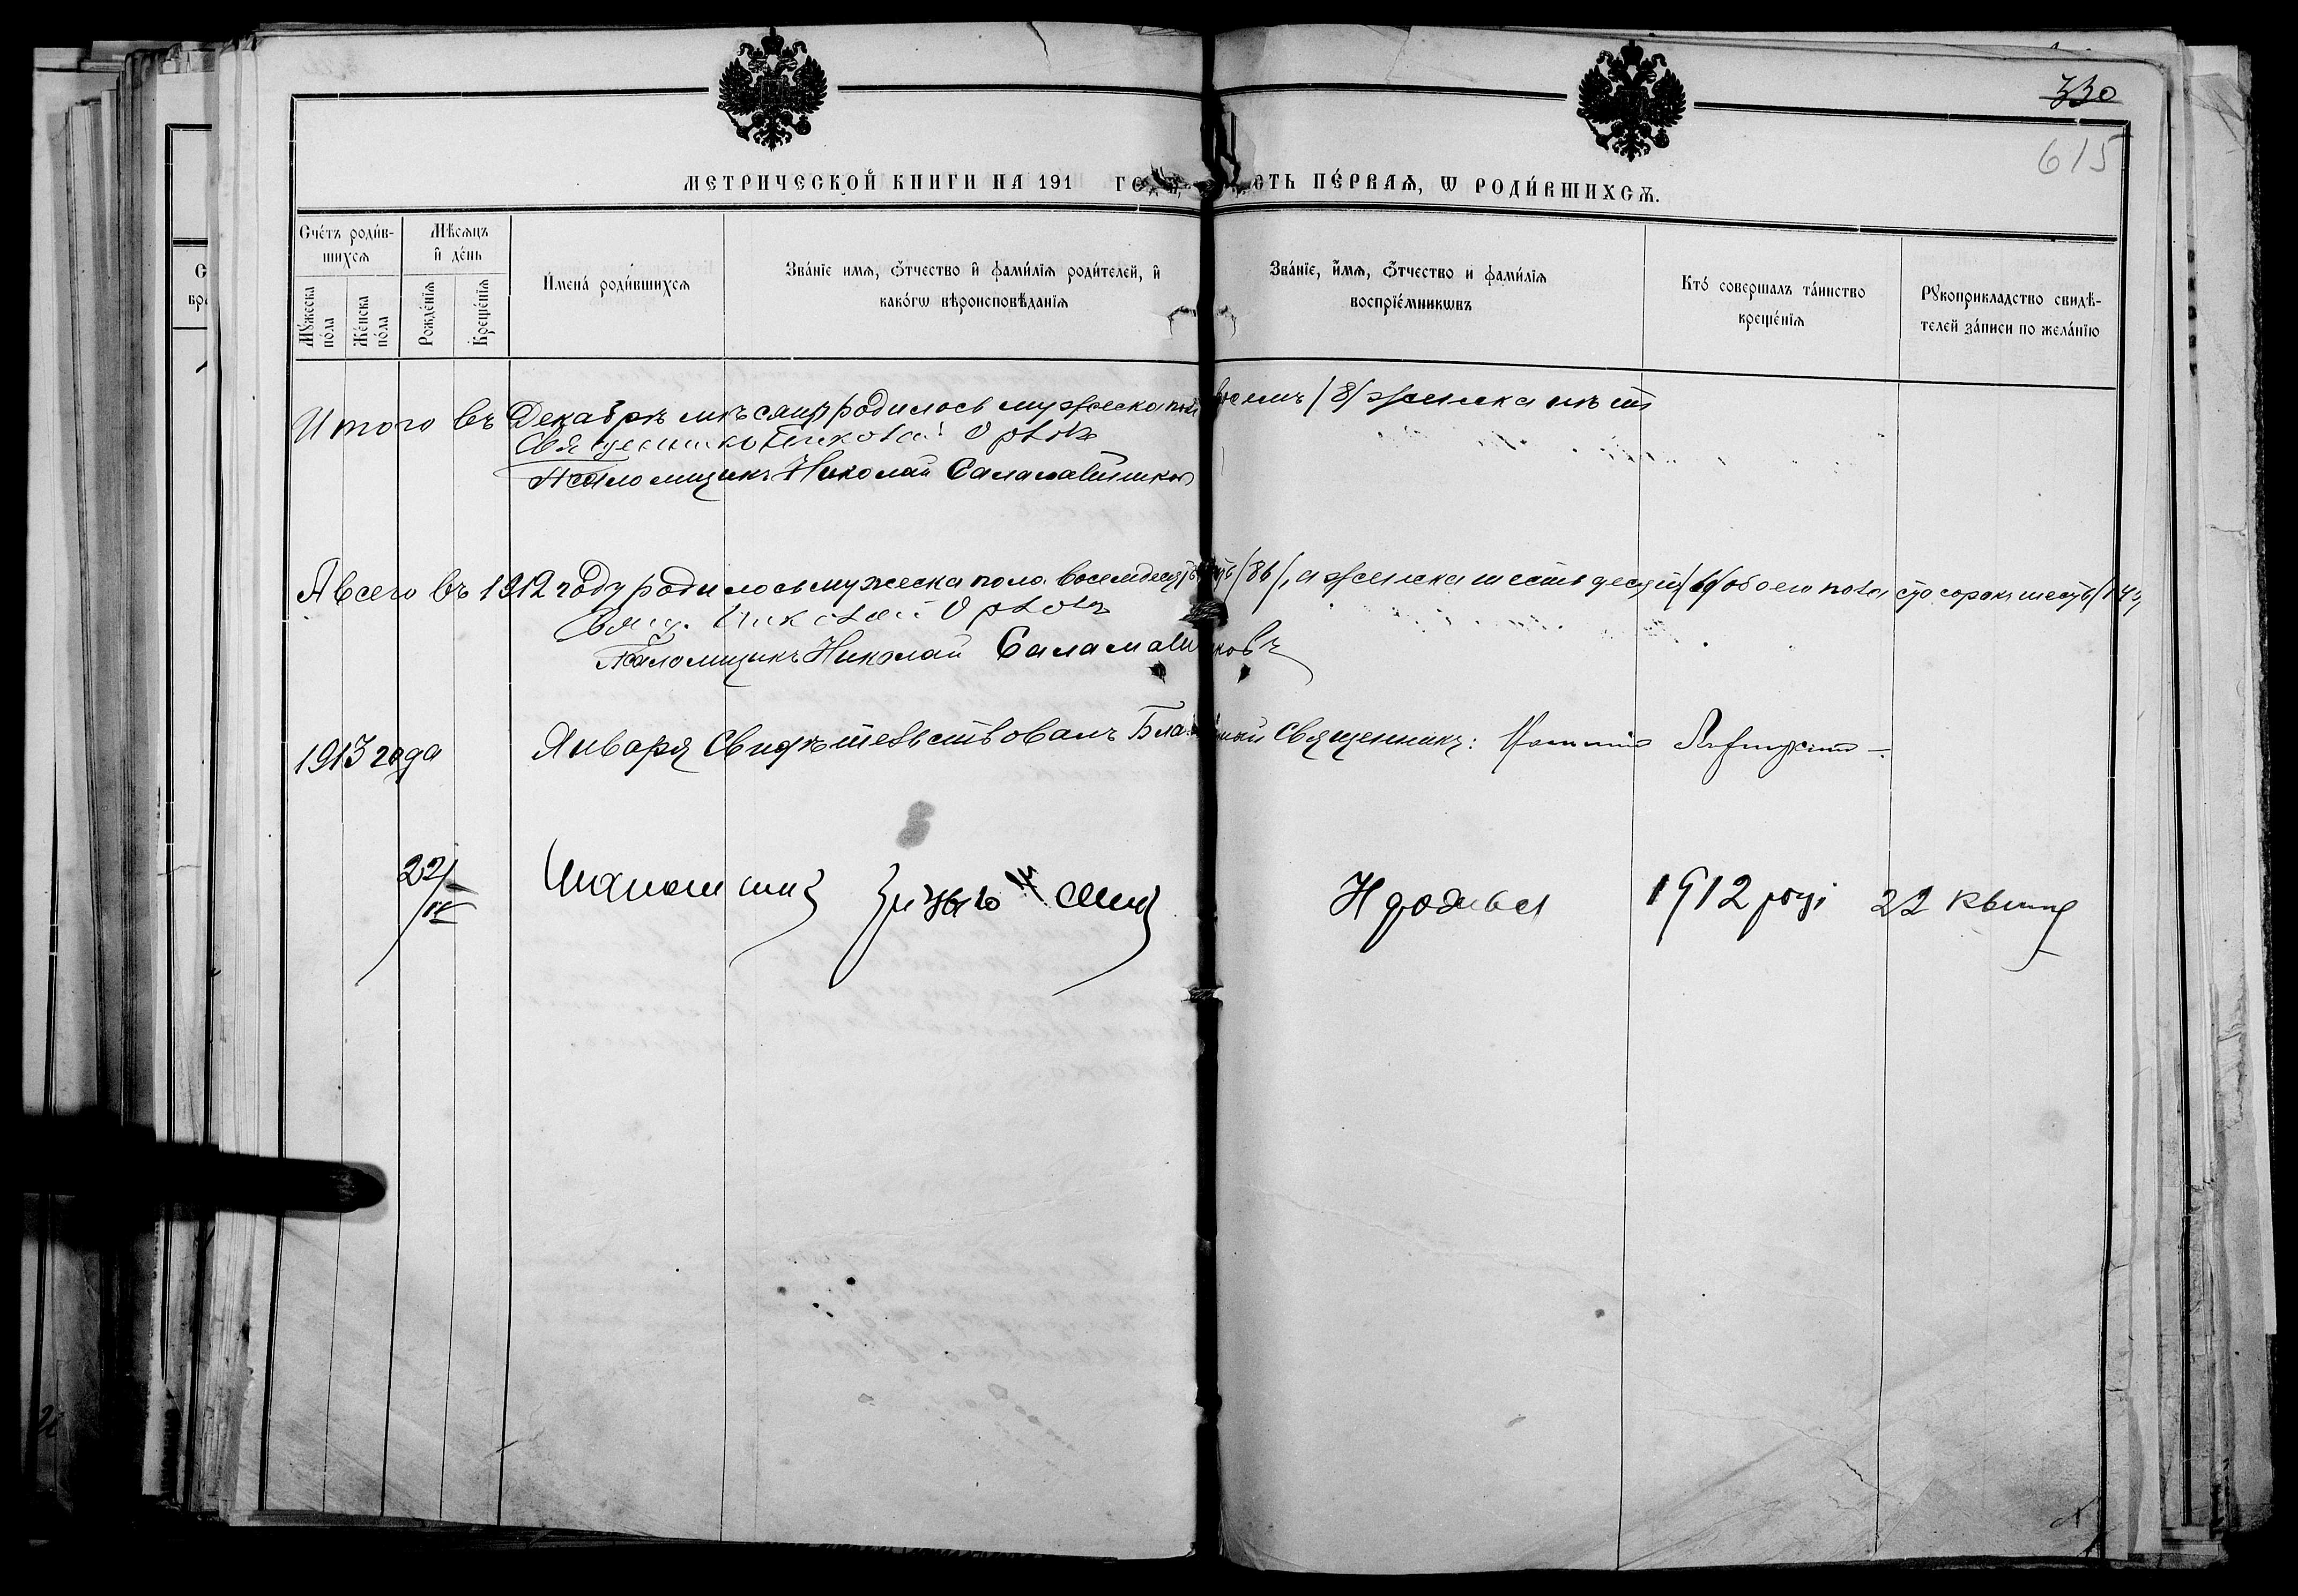 330
615
МЕТРИЧЕСКОЙ КНИГИ НА 191 ГО СТЬ ПЕ́РВАѦ, Ѡ РОДИ́ВШИХСѦ.
Сче́тъ роди́в-
шихсѧ
Мꙋ́жеска
по́ла
Же́нска
по́ла
Мѣ́сѧцъ
и҆ де́нь
Рожде́нїѧ
Креще́нїѧ
И҆мена́ роди́вшихсѧ
Зва́нїе имѧ, ѻ҆́тчество и҆ фамѝлїѧ роди́телей, и҆
како́гѡ вѣроисповѣ́данїѧ
Зва́нїе, и҆́мѧ, ѻ҆́тчество и фами́лїѧ
воспрїе́мникѡвъ
Кто́ совершалъ та́инство
креще́нїѧ
Рꙋкоприкладство свидѣ́-
телей за́писи по жела́нїю
Итого въ Декабрѣ мѣсяцѣ родилось мужеска пола восемь /8/ женска нѣт
Священникъ Николай Орловъ
Псаломщикъ Николай Саламатников
А всего въ 1912 году родилось мужеска пола восемдесятъ /86/, а женска шестьдесят обоего пола сто сорокъ шесть
Свящ. Николай Орловъ
Псаломщикъ Николай Саламатниковъ
1913 года Января Свидѣтельствовалъ Священникъ:
22/IV
Народився 1912 році 22 квітня